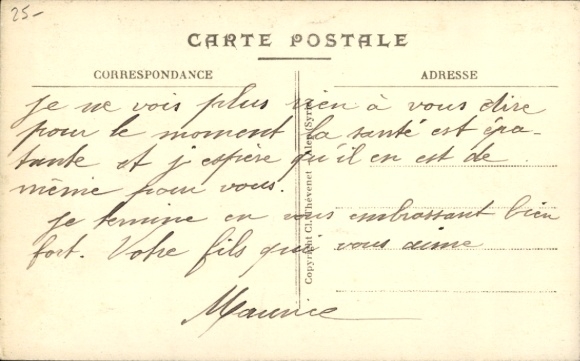 25-
CARTE POSTALE
CORRESPONDANCE
ADRESSE
je ne vois plus rien à vous dire
pour le moment la santé est épa-
tante et j'espère qu'il en est de
même pour vous.
je termine en vous embrassant bien
fort. Votre fils qui vous aime
Maurice
Copyright Cl. Thévenet (Syrie)